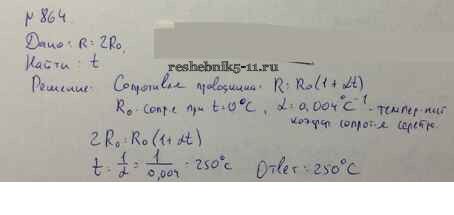 № 864.
Дано: R = 2R₀,
Найти: t
reshebnik5-11.ru
Решение: Сопротивле проводника: R = R₀(1 + αt)
R₀ - сопр-е при t = 0°C, α = 0,004°C⁻¹ - темпер-ный
сопрот-е серебра.
2R₀ = R₀(1 + αt)
t = 1/α = 1/0,004 = 250°C Ответ: 250°C